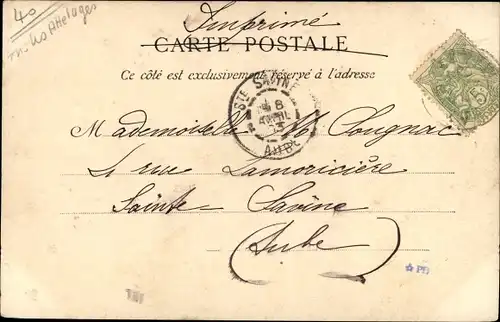 40
Attelages
Imprimé
CARTE POSTALE
Ce côté est exclusivement réservé à l'adresse
STE SAVINE
8
AVRIL
AUBE
5
Mademoiselle M. Cougnac
rue Lamoricière
Sainte-Savine
(Aube)
PD